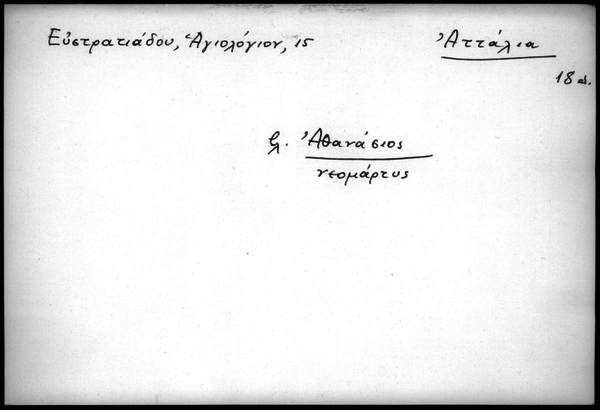 Εὐστρατιάδου, Ἁγιολόγιον, 15
Ἀττάλια
18 αἰ.
βλ. Ἀθανάσιος
νεομάρτυς